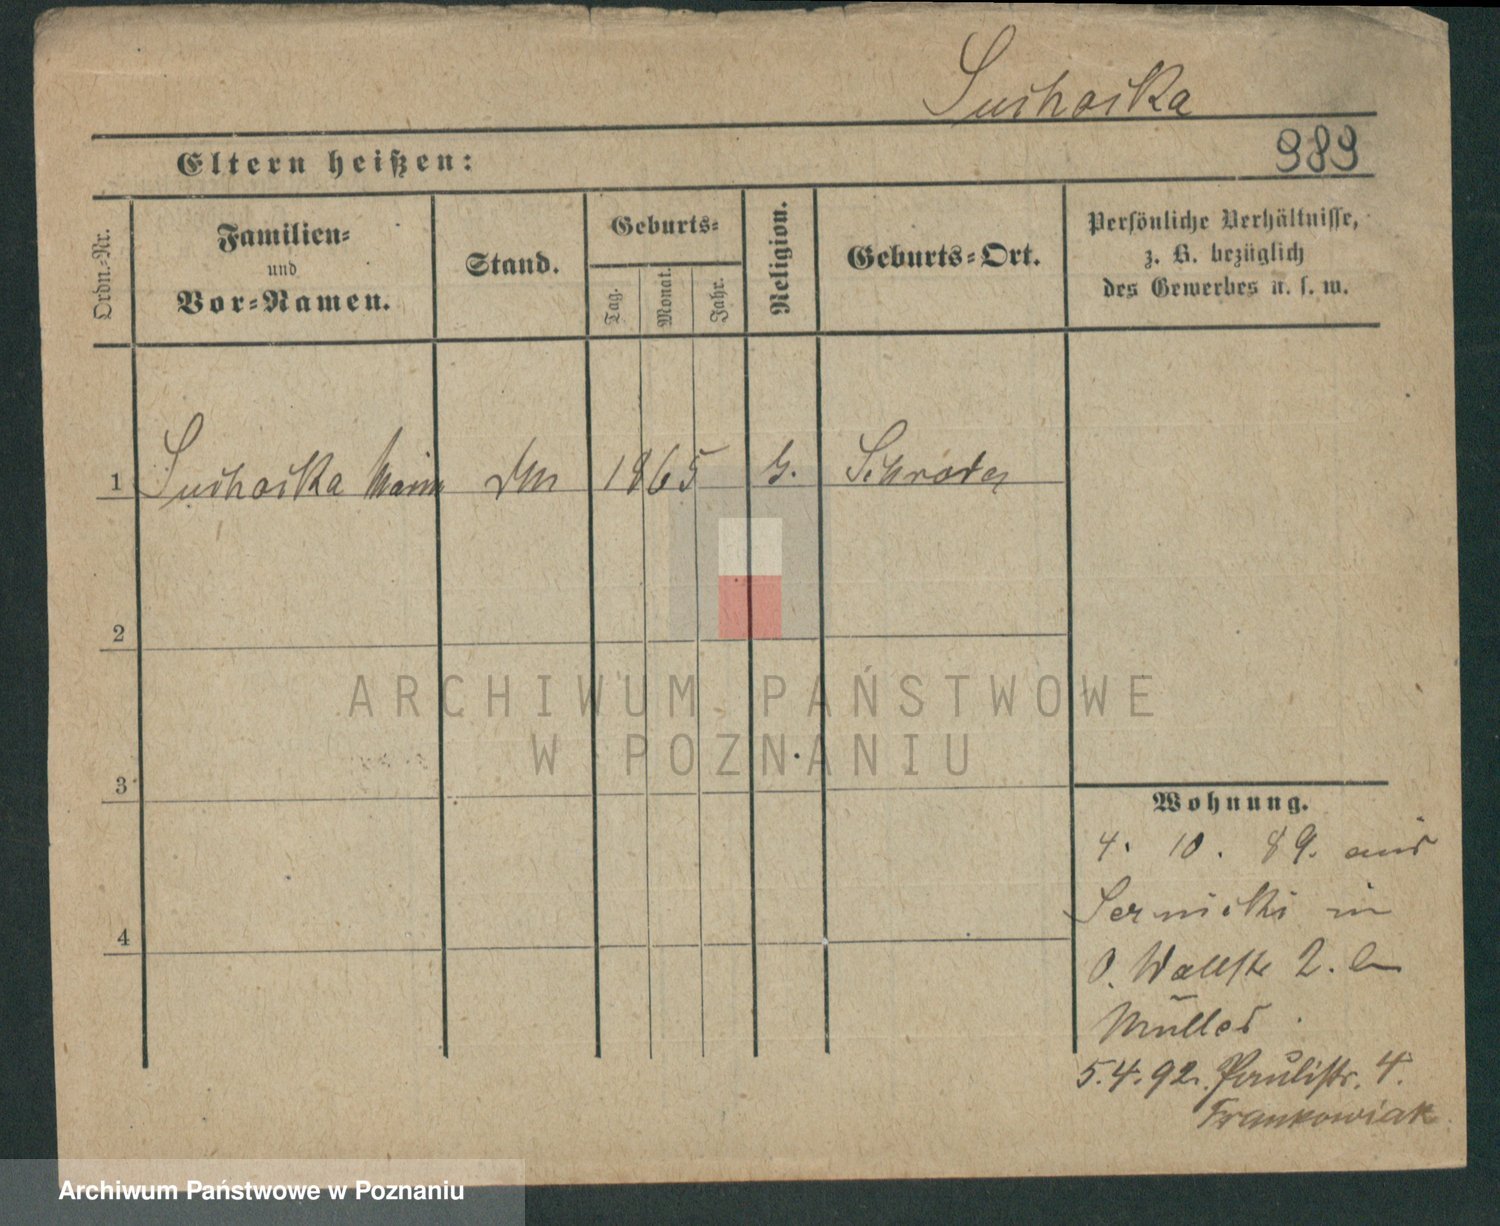 Suchocka
Eltern heißen:
989
Ordn.-Nr.
Familien-
und
Vor-Namen.
Stand.
Geburts-
Tag.
Monat.
Jahr.
Religion.
Geburts-Ort.
Persönliche Verhältnisse,
z. B. bezüglich
des Gewerbes u. s. w.
1 Suchocka 1865 Schroda
2
3
4
ARCHIWUM PAŃSTWOWE
W POZNANIU
Wohnung.
4. 10. 89. aus
in
O. Wallstr 2.
Müller
5.4.92. Paulistr. 4.
Frankowiak
Archiwum Państwowe w Poznaniu